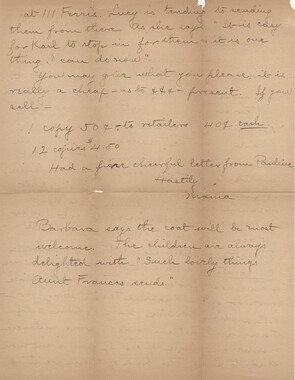 at 111 Ferris. Lucy is tending to sending
them from there. As she says "It is easy
for Karl to stop in for them - it is one
thing I can do now."
You may give what you please. It is
really a cheap - as to $$$ - present. If you
sell -
1 copy 50¢ - to retailers 40¢ cash
12 copies $4.50
Had a fine cheerful letter from Pauline
Hastily
Mama
Barbara says the coat will be most
welcome. The children are always
delighted with "Such lovely things
Aunt Frances sends."